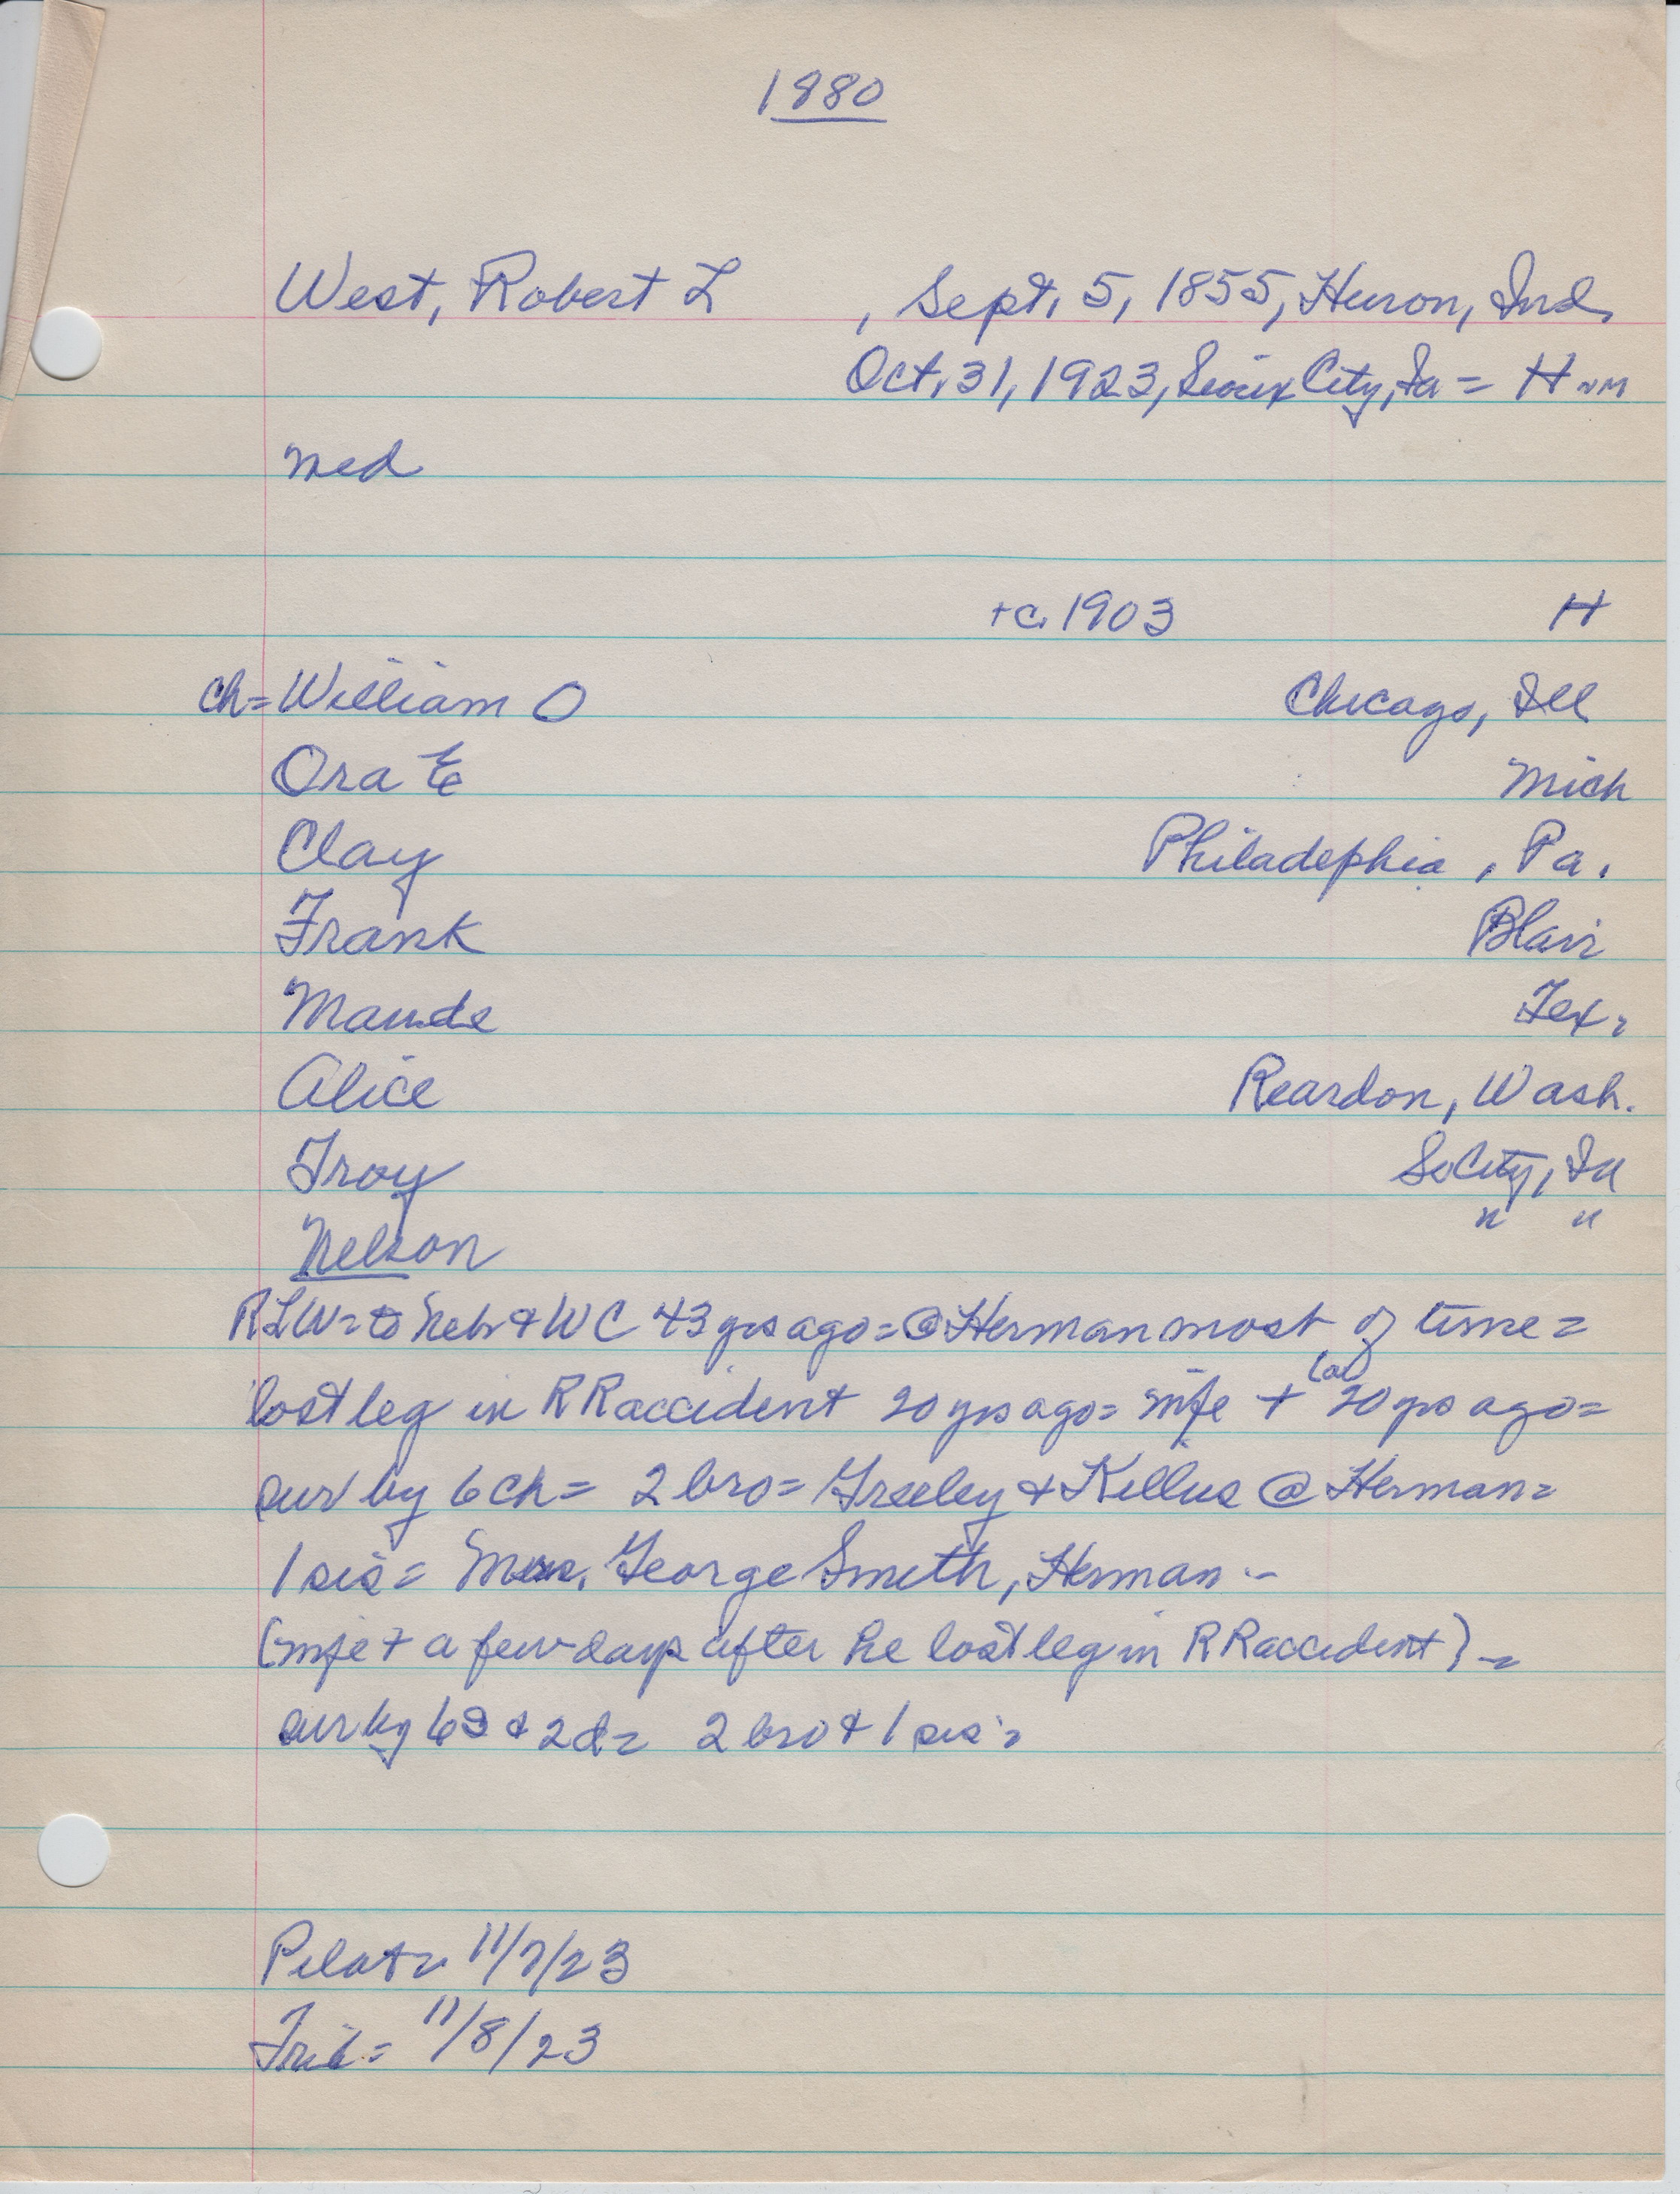 1880
West, Robert L , Sept. 5, 1855, Huron, Ind.
Oct. 31, 1923, Sioux City, Ia = H
med
+c. 1903 H
ch= William O Chicago, Ill
Ora E Mich
Clay Philadephia, Pa.
Frank Blair
Maude Tex.
Alice Reardon, Wash.
Troy S City, Ia
Nelson " "
RLW = to Neb & WC 43 yrs ago = @ Herman most of time =
(a)
lost leg in RR accident 20 yrs ago = wife + 20 yrs ago =
sur by 6 ch = 2 bro = Greeley & Kellus @ Herman =
1 sis = Mrs. George Smith, Herman -
(wife + a few days after he lost leg in RR accident) =
sur by 6 s & 2 d = 2 bro & 1 sis =
Pilot = 11/7/23
Trib = 11/8/23